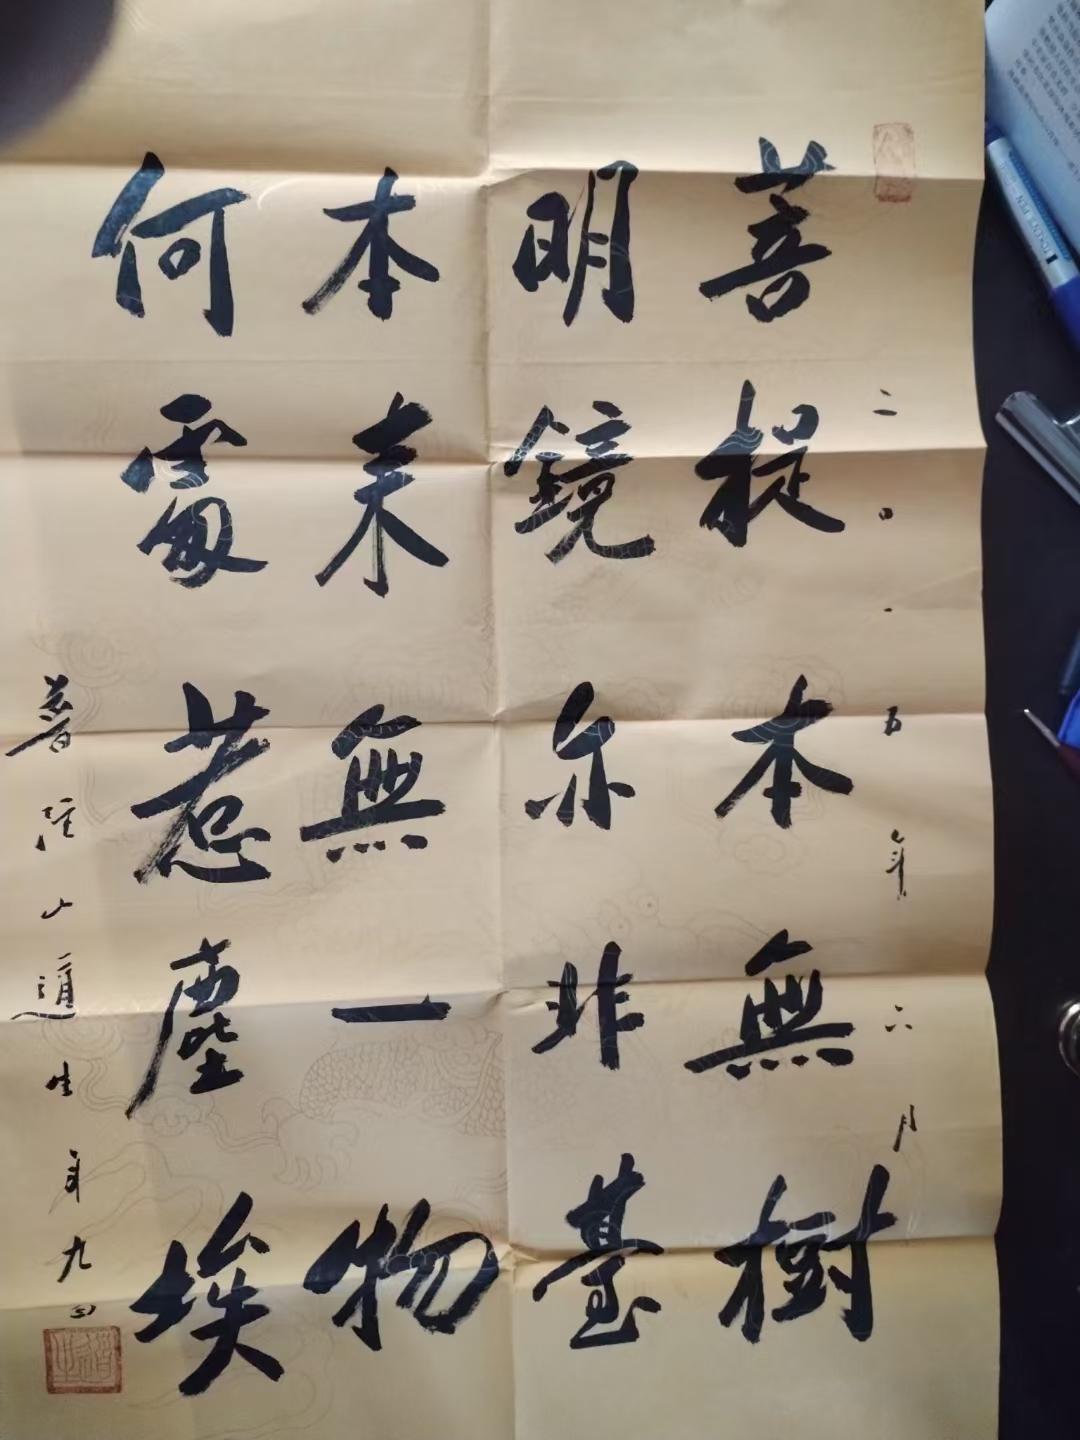 二〇一五年六月
菩提本無樹
明鏡亦非臺
本来無一物
何處惹塵埃
普陀山道生年九四